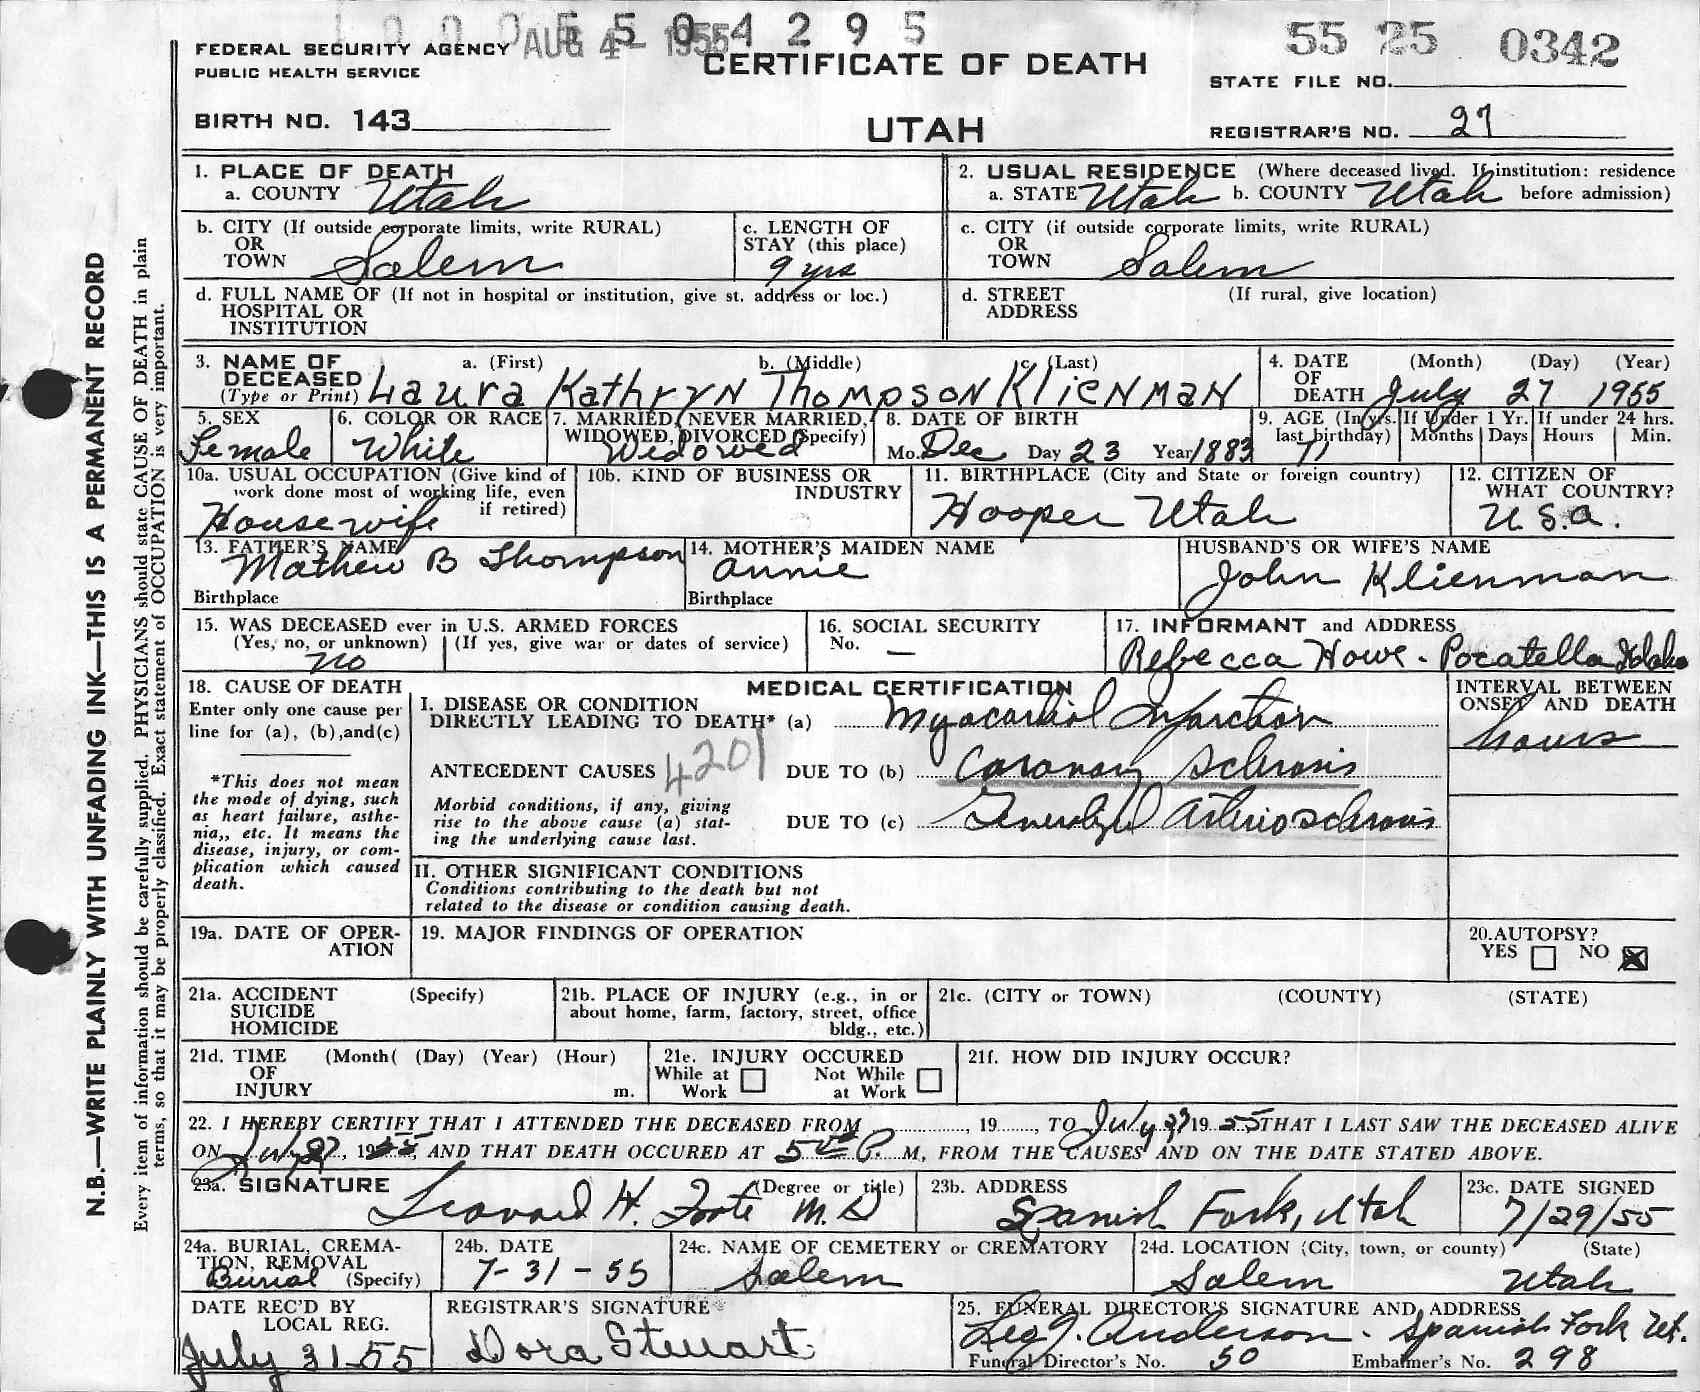 1 0 0 0 5 5 0 4 2 9 5
AUG 4 - 1955
55 25 0342
FEDERAL SECURITY AGENCY
PUBLIC HEALTH SERVICE
CERTIFICATE OF DEATH
STATE FILE NO.
BIRTH NO. 143
UTAH
REGISTRAR'S NO. 27
N.B.—WRITE PLAINLY WITH UNFADING INK—THIS IS A PERMANENT RECORD
Every item of information should be carefully supplied. PHYSICIANS should state CAUSE OF DEATH in plain
terms, so that it may be properly classified. Exact statement of OCCUPATION is very important.
1. PLACE OF DEATH
a. COUNTY Utah
2. USUAL RESIDENCE (Where deceased lived. If institution: residence
a. STATE Utah b. COUNTY Utah before admission)
b. CITY (If outside corporate limits, write RURAL)
OR
TOWN Salem
c. LENGTH OF
STAY (this place)
9 yrs
c. CITY (if outside corporate limits, write RURAL)
OR
TOWN Salem
d. FULL NAME OF (If not in hospital or institution, give st. address or loc.)
HOSPITAL OR
INSTITUTION
d. STREET (If rural, give location)
ADDRESS
3. NAME OF a. (First) b. (Middle) c. (Last)
DECEASED
(Type or Print) Laura Kathryn Thompson Klienman
4. DATE (Month) (Day) (Year)
OF
DEATH July 27 1955
5. SEX
Female
6. COLOR OR RACE
White
7. MARRIED, NEVER MARRIED,
WIDOWED, DIVORCED (Specify)
Widowed
8. DATE OF BIRTH
Mo. Dec Day 23 Year 1883
9. AGE (In yrs. last birthday)
71
If Under 1 Yr.
Months Days
If under 24 hrs.
Hours Min.
10a. USUAL OCCUPATION (Give kind of
work done most of working life, even
if retired)
House wife
10b. KIND OF BUSINESS OR
INDUSTRY
11. BIRTHPLACE (City and State or foreign country)
Hooper Utah
12. CITIZEN OF
WHAT COUNTRY?
U.S.A.
13. FATHER'S NAME
Mathew B Thompson
Birthplace
14. MOTHER'S MAIDEN NAME
Annie
Birthplace
HUSBAND'S OR WIFE'S NAME
John Klienman
15. WAS DECEASED ever in U.S. ARMED FORCES
(Yes, no, or unknown) (If yes, give war or dates of service)
no
16. SOCIAL SECURITY
No. —
17. INFORMANT and ADDRESS
Rebecca Howe - Pocatella Idaho
18. CAUSE OF DEATH
Enter only one cause per
line for (a), (b),and(c)
*This does not mean
the mode of dying, such
as heart failure, asthe-
nia,, etc. It means the
disease, injury, or com-
plication which caused
death.
MEDICAL CERTIFICATION
I. DISEASE OR CONDITION
DIRECTLY LEADING TO DEATH* (a) Myocardial Infarction
ANTECEDENT CAUSES 4201 DUE TO (b) Coronary Sclerosis
Morbid conditions, if any, giving
rise to the above cause (a) stat-
ing the underlying cause last.
DUE TO (c) Generalized Arteriosclerosis
INTERVAL BETWEEN
ONSET AND DEATH
hours
II. OTHER SIGNIFICANT CONDITIONS
Conditions contributing to the death but not
related to the disease or condition causing death.
19a. DATE OF OPER-
ATION
19. MAJOR FINDINGS OF OPERATION
20.AUTOPSY?
YES NO X
21a. ACCIDENT (Specify)
SUICIDE
HOMICIDE
21b. PLACE OF INJURY (e.g., in or
about home, farm, factory, street, office
bldg., etc.)
21c. (CITY or TOWN) (COUNTY) (STATE)
21d. TIME (Month( (Day) (Year) (Hour)
OF
INJURY m.
21e. INJURY OCCURED
While at Not While
Work at Work
21f. HOW DID INJURY OCCUR?
22. I HEREBY CERTIFY THAT I ATTENDED THE DECEASED FROM , 19 , TO July 27 19 55 THAT I LAST SAW THE DECEASED ALIVE
ON July 27, 1955, AND THAT DEATH OCCURED AT 5 00 P. M, FROM THE CAUSES AND ON THE DATE STATED ABOVE.
23a. SIGNATURE (Degree or title)
Leonard H. Foote M.D
23b. ADDRESS
Spanish Fork, Utah
23c. DATE SIGNED
7/29/55
24a. BURIAL, CREMA-
TION, REMOVAL
Burial (Specify)
24b. DATE
7-31-55
24c. NAME OF CEMETERY or CREMATORY
Salem
24d. LOCATION (City, town, or county) (State)
Salem Utah
DATE REC'D BY
LOCAL REG.
July 31-55
REGISTRAR'S SIGNATURE
Dora Stewart
25. FUNERAL DIRECTOR'S SIGNATURE AND ADDRESS
Leo J. Anderson - Spanish Fork Ut.
Funeral Director's No. 50 Embalmer's No. 298